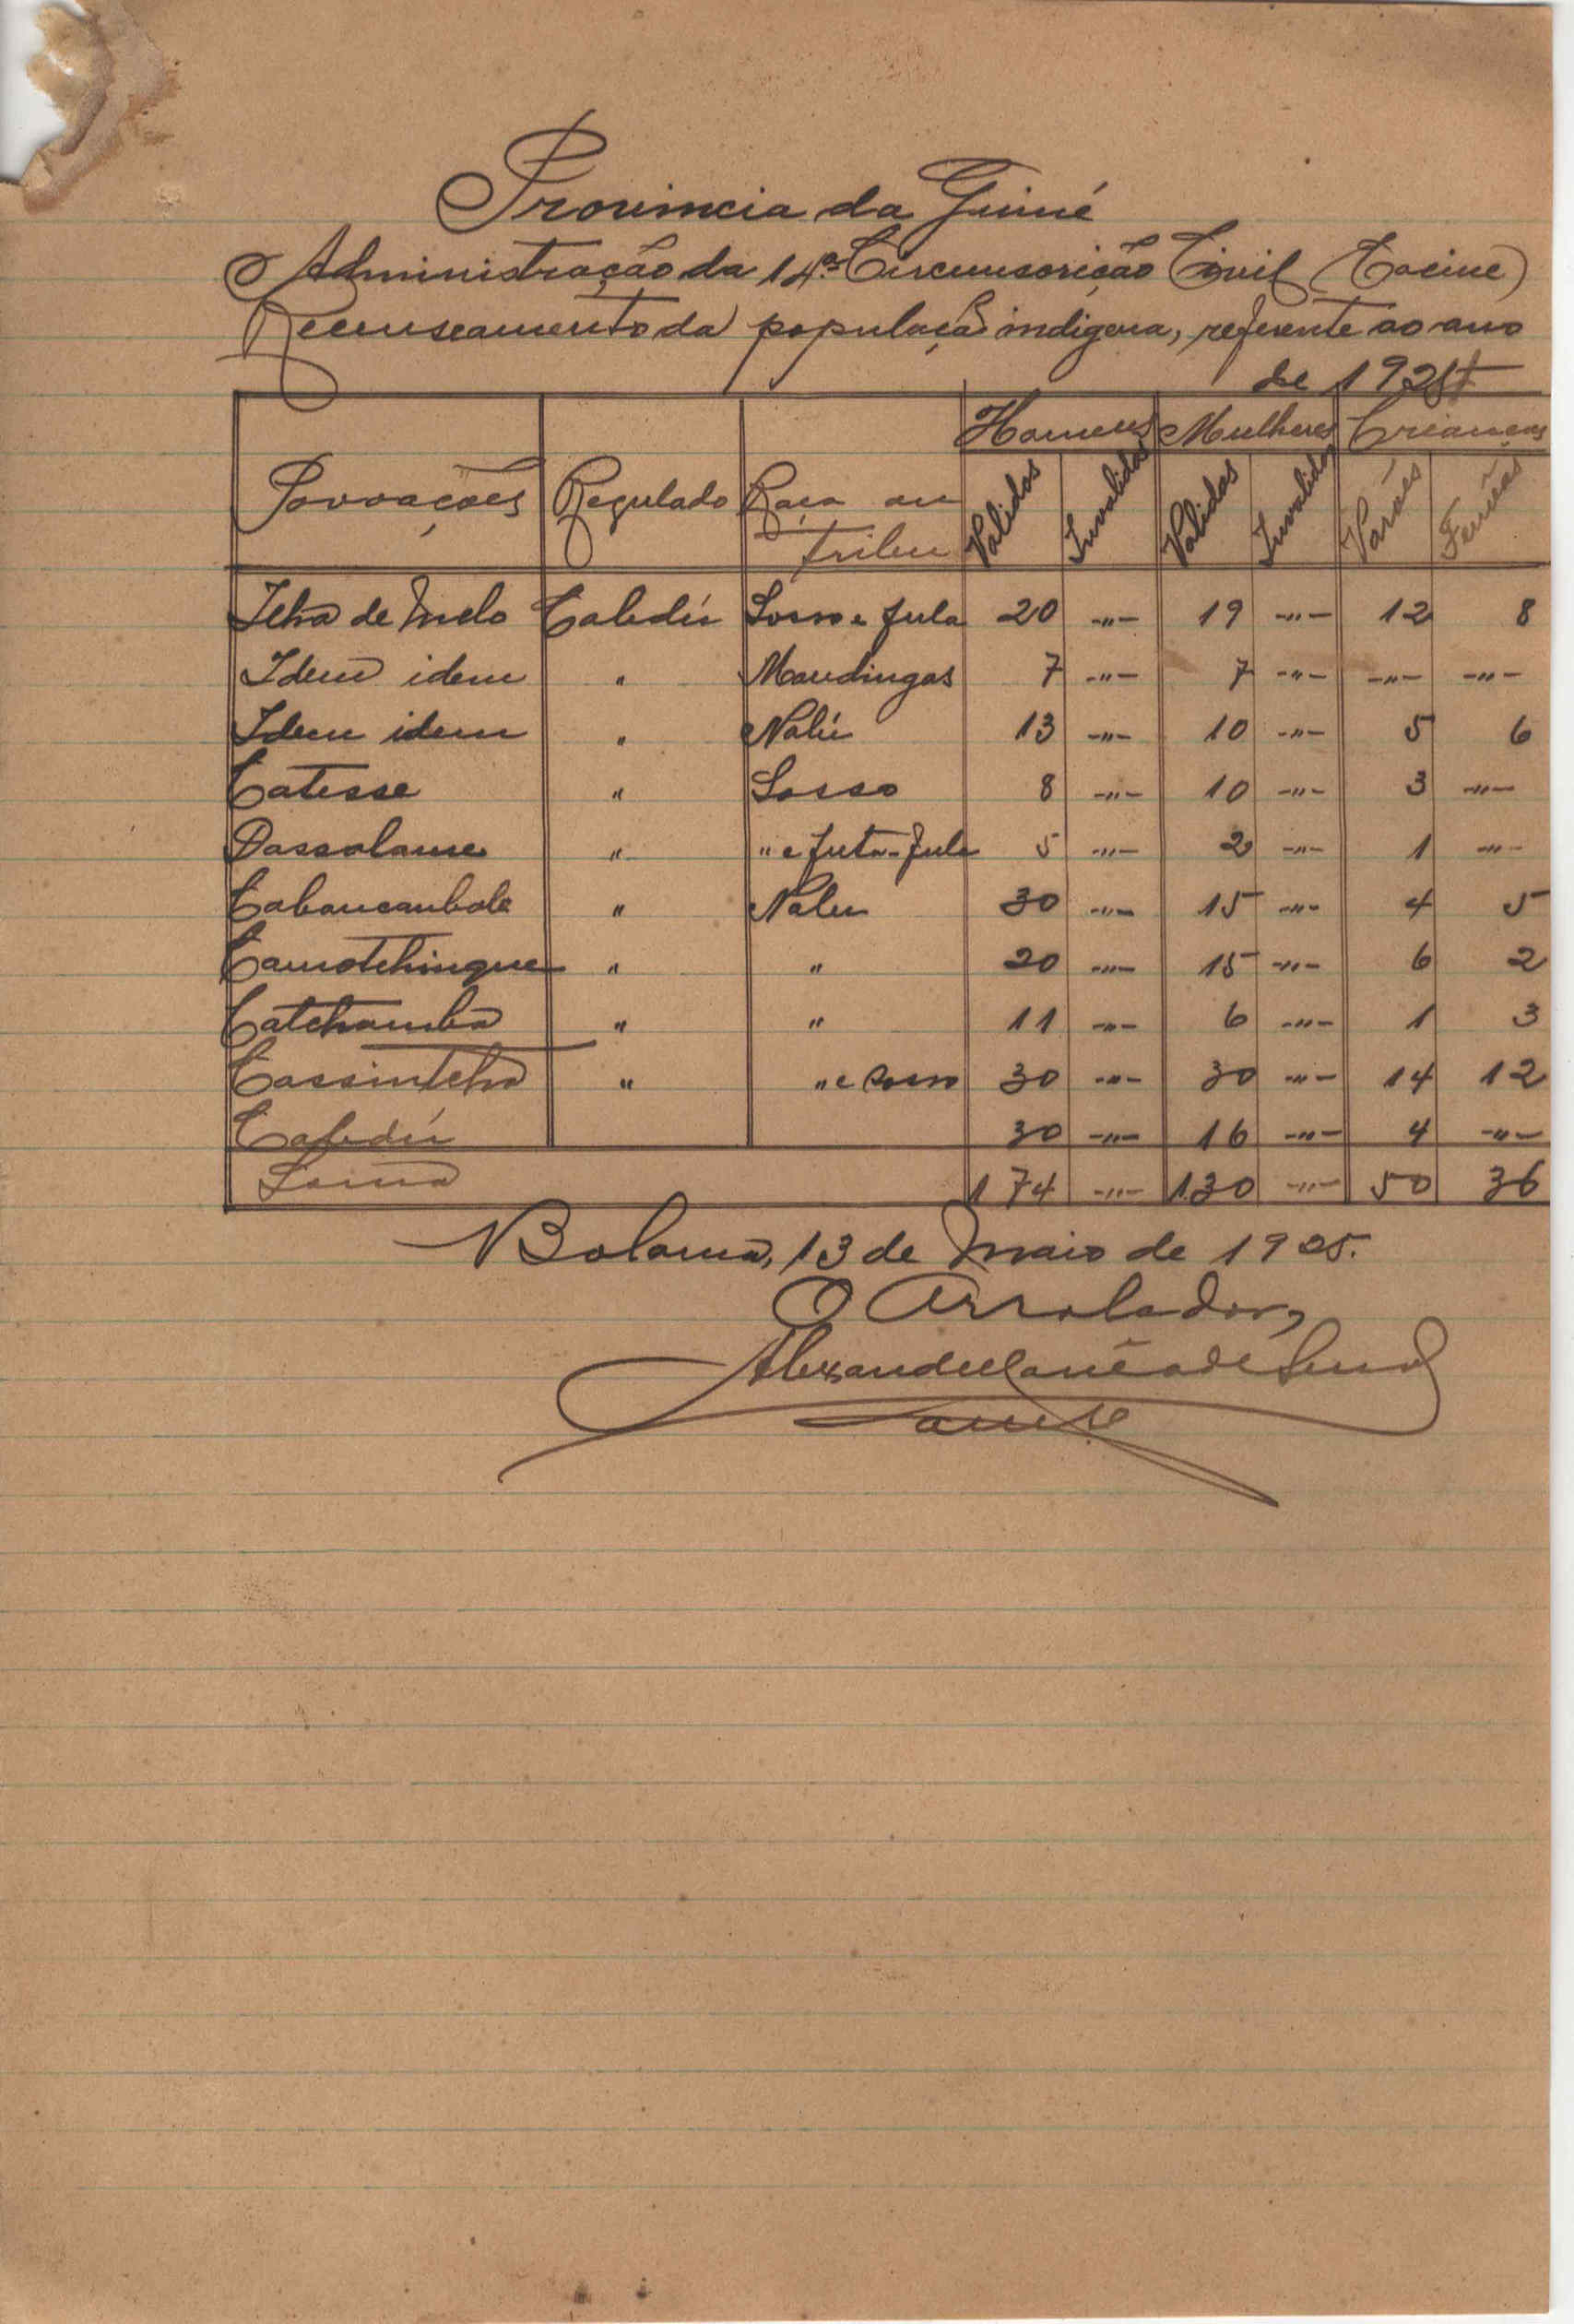 Provincia da Guiné
Administração da 14ª Circunscrição Civil (Cacine)
Recenseamento da população indigena, referente ao ano
de 1924
Homens Mulheres Crianças
Povoações Regulado Raça ou tribu Validos Invalidos Validas Invalidas Varões Femeas
Ilha de Melo Cabedú Sosso e fula 20 -"- 19 -"- 12 8
Idem idem " Mandingas 7 -"- 7 -"- -"- -"-
Idem idem " Nalú 13 -"- 10 -"- 5 6
Catesse " Sosso 8 -"- 10 -"- 3 -"-
Dassalame " " e futa-fula 5 -"- 2 -"- 1 -"-
" Nalu 30 -"- 15 -"- 4 5
Camotchingue " " 20 -"- 15 -"- 6 2
Catchamba " " 11 -"- 6 -"- 1 3
Cassintcha " " e Sosso 30 -"- 30 -"- 14 12
Cabedú 30 -"- 16 -"- 4 -"-
Soma 174 -"- 130 -"- 50 36
Bolama, 13 de Maio de 1925.
O Arrolador,
Alexandre